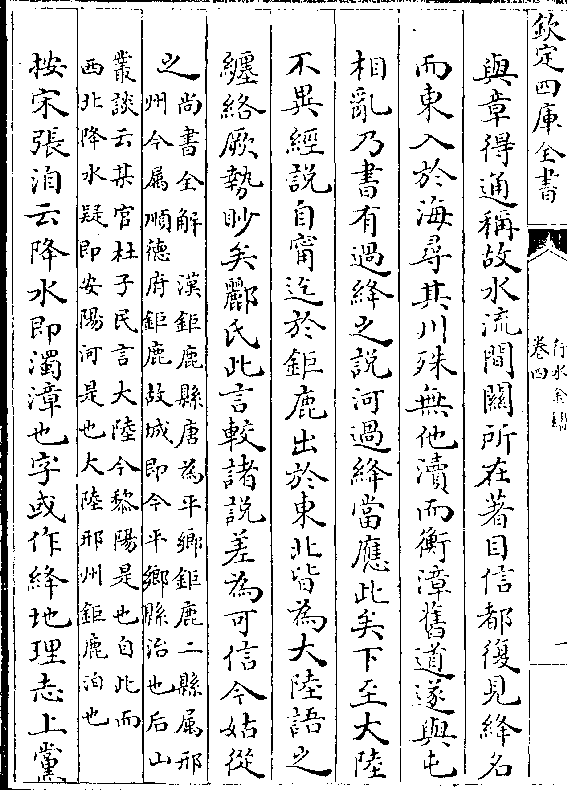 欽定四庫全書
行水金鑑
卷四
一
與章得通稱故水流間關所在著目信都復見絳名
而東入於海尋其川殊無他瀆而衡漳舊道遂與屯
相亂乃書有過絳之說河過絳當應此矣下至大陸
不異經説自甯迄於鉅鹿出於東北皆為大陸語之
纏絡厥勢眇矣酈氏此言較諸說差為可信今姑從
之
尚書全解　漢鉅鹿縣唐為平鄉鉅鹿二縣属邢
州今属順德府鉅鹿故城即今平鄉縣治也后山
叢談云某官杜子民言大陸今黎陽是也自此而
西北降水疑即安陽河是也大陸邢州鉅鹿泊也
按宋張洎云降水即濁漳也字或作絳地理志上黨